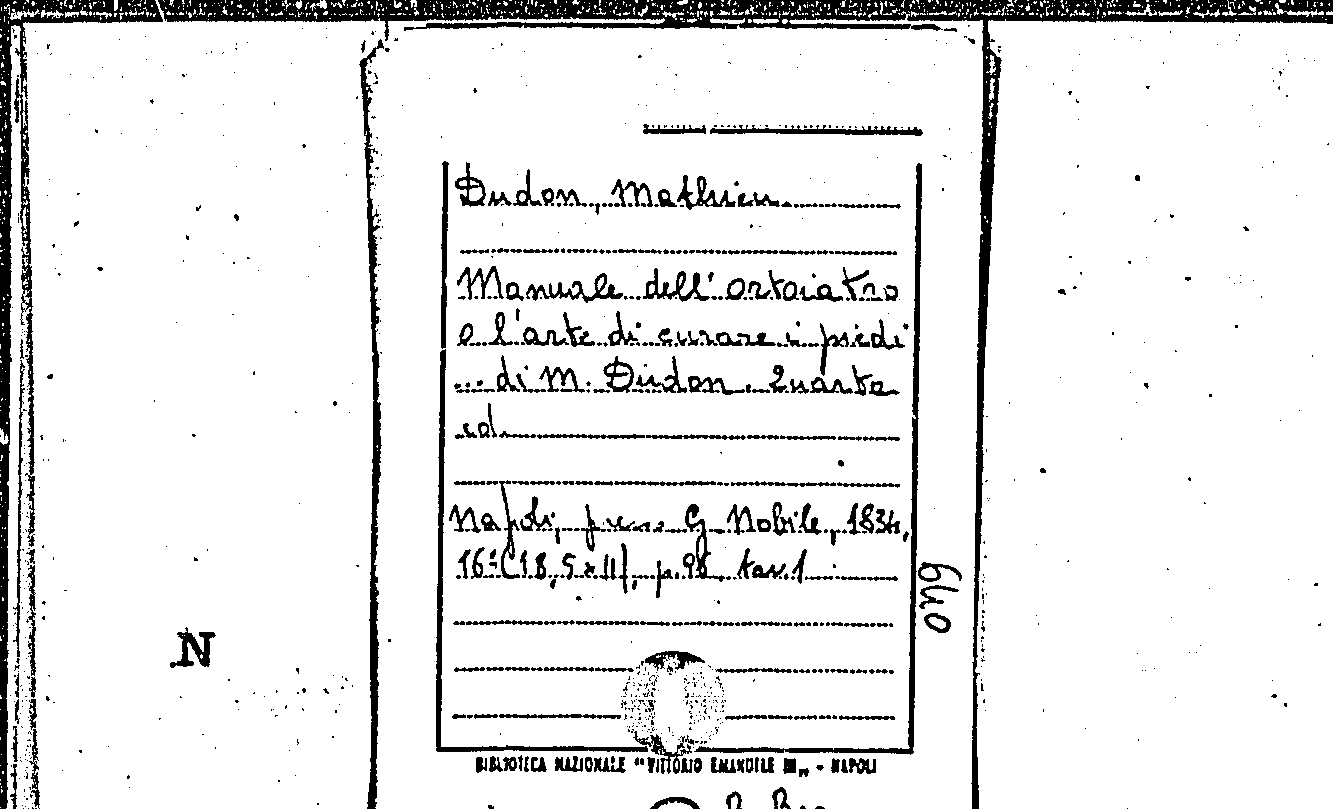 Dudon, Mathieu
Manuale dell'ortoiatro
o l'arte di curare i piedi
... di M. Dudon. Quarta
ed.
Napoli, press. G. Nobile, 1834,
16° (18,5 x 11), p. 96. tav. 1
640
N
BIBLIOTECA NAZIONALE "VITTORIO EMANUELE III" - NAPOLI